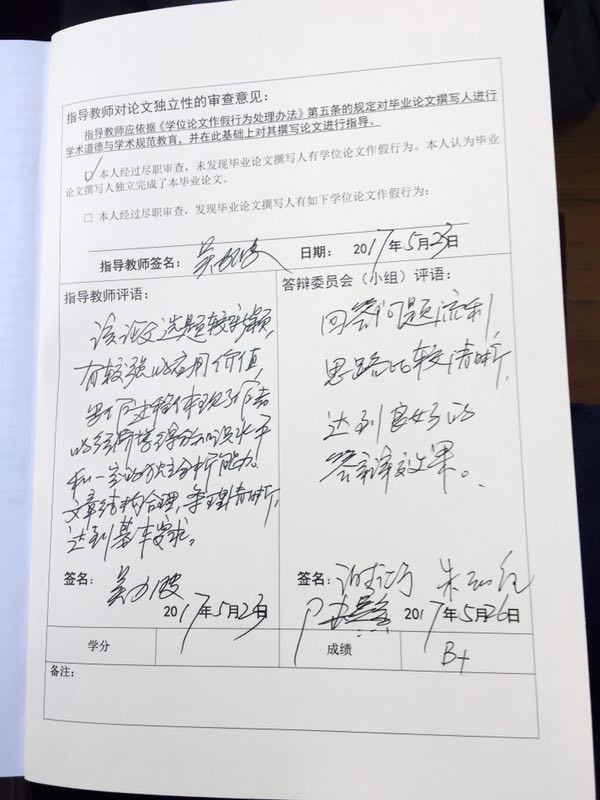 指导教师对论文独立性的审查意见：
指导教师应依据《学位论文作假行为处理办法》第五条的规定对毕业论文撰写人进行
学术道德与学术规范教育，并在此基础上对其撰写论文进行指导。
☑ 本人经过尽职审查，未发现毕业论文撰写人有学位论文作假行为。本人认为毕业
论文撰写人独立完成了本毕业论文。
□ 本人经过尽职审查，发现毕业论文撰写人有如下学位论文作假行为：
指导教师签名： 吴力波 日期： 2017年5月23日
指导教师评语：
该论文选题较新颖，
有较强的应用价值，
的经济学理论知识水平
和一定的独立分析能力。
文章结构合理，条理清晰，
达到基本要求。
签名： 吴力波
2017年5月23日
答辩委员会（小组）评语：
回答问题流利，
思路比较清晰，
达到良好的
答辩效果。
签名：
2017年5月26日
学分
成绩 B+
备注：